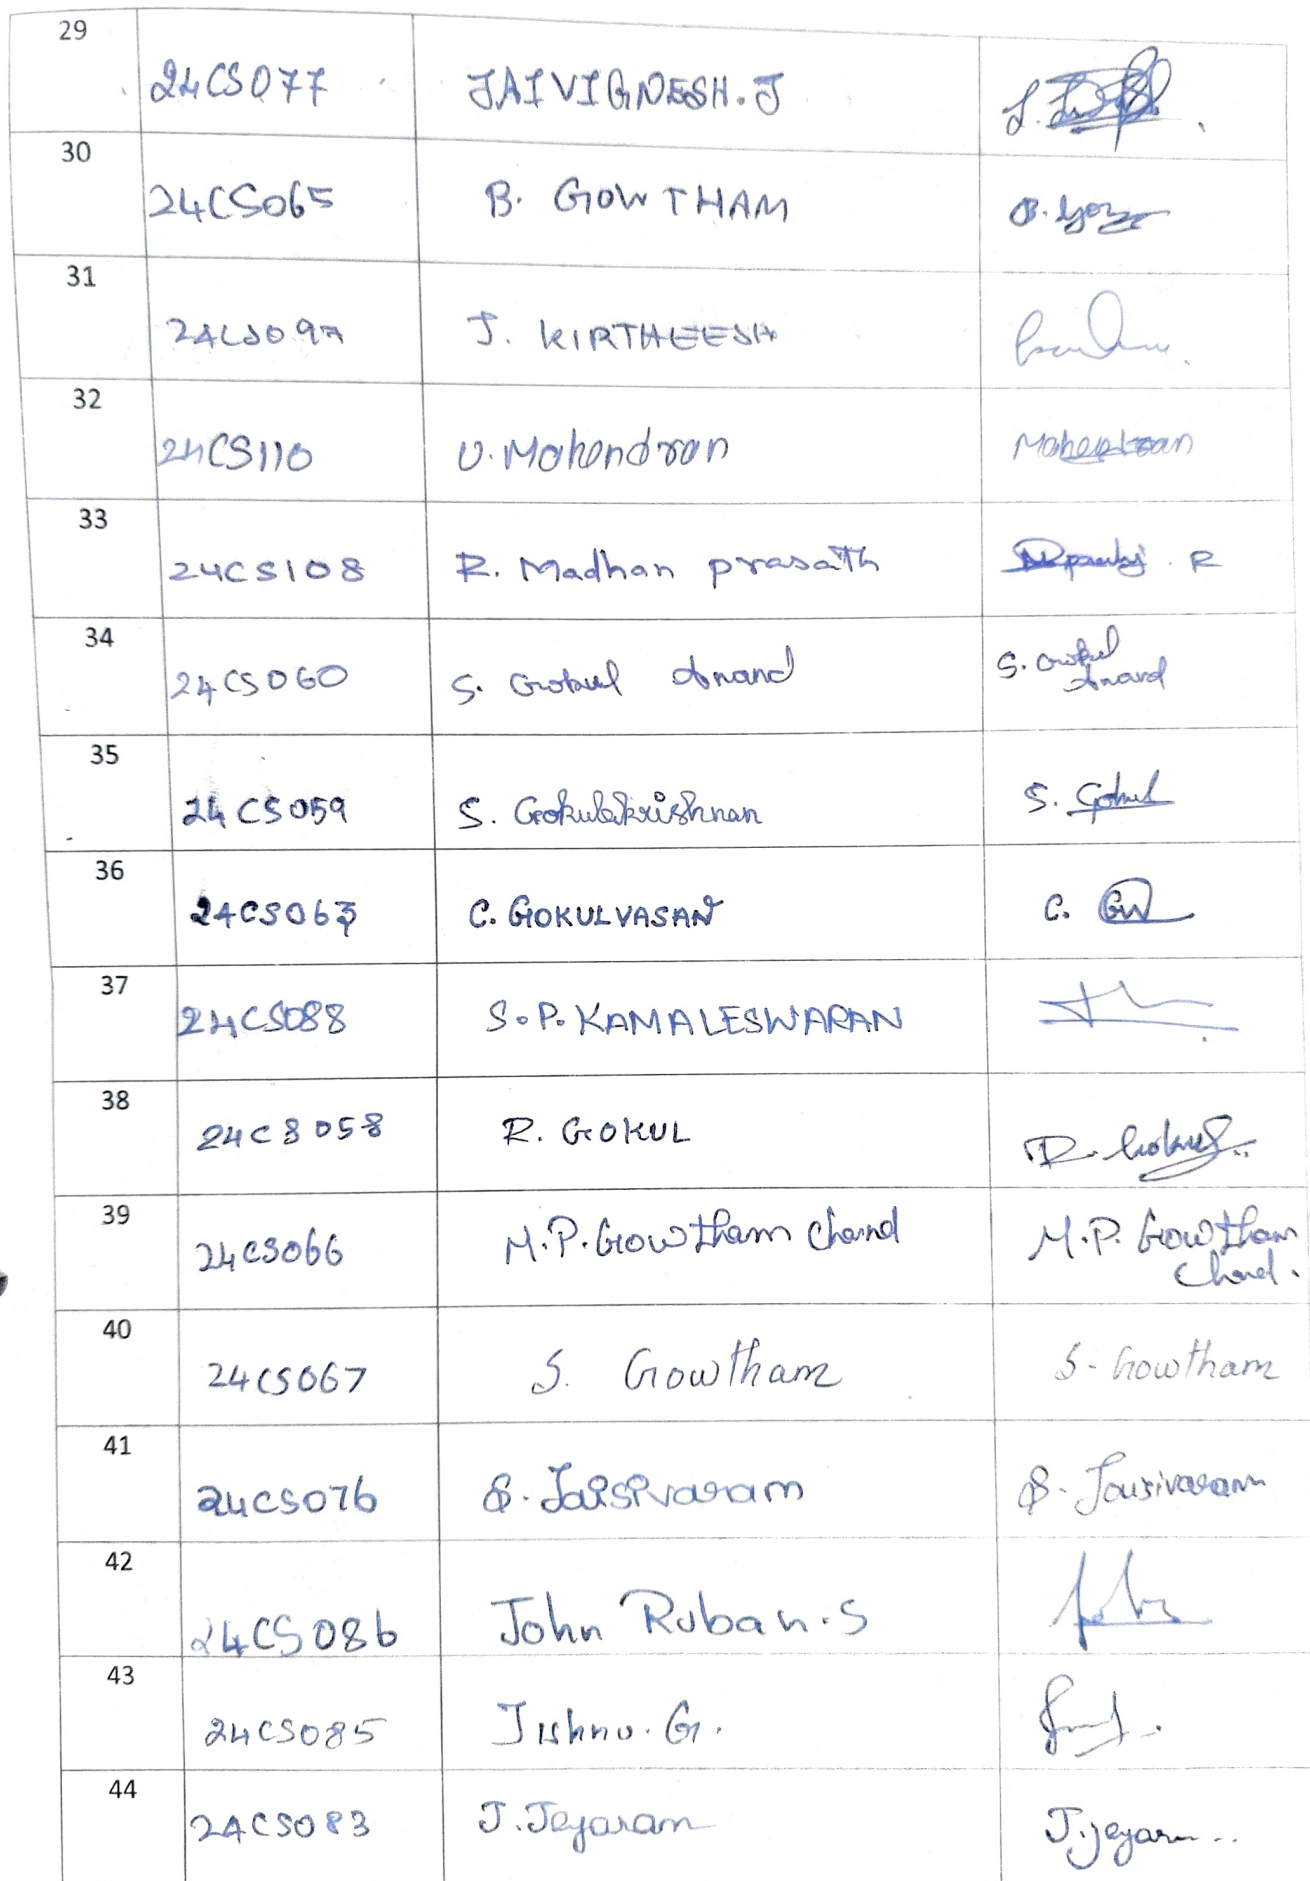 29 24CS077 JAIVIGNESH.J
30 24CS065 B. GOWTHAM
31 24CS097 J. KIRTHEESH
32 24CS110 U. Mahendran Mahendran
33 24CS108 R. Madhan prasath R
34 24CS060 S. Gokul Anand S. Gokul
Anand
35 24CS059 S. Gokulakrishnan S. Gokul
36 24CS063 C. GOKULVASAN C.
37 24CS088 S.P. KAMALESWARAN
38 24CS058 R. GOKUL R. Gokul
39 24CS066 M.P. Gowtham Chand M.P. Gowtham
Chand.
40 24CS067 S. Gowtham S. Gowtham
41 24CS076 S. Jaisivaram S. Jaisivaram
42 24CS086 John Ruban.S
43 24CS085 Jishnu. G.
44 24CS083 J. Jeyaram J. Jeyaram